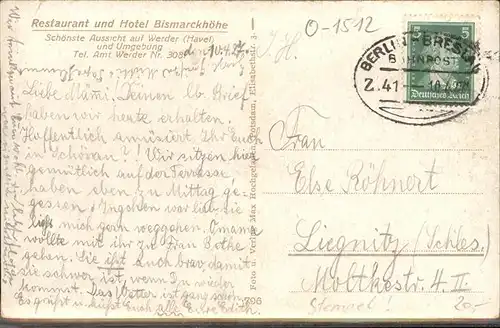 Restaurant und Hotel Bismarckhöhe
Schönste Aussicht auf Werder (Havel)
und Umgebung
Tel. Amt Werder Nr. 308
den 10.4.27.
Liebe Mami, Deinen lb. Brief
haben wir heute erhalten.
Hoffentlich amüsiert Ihr Euch
in Schönau?! Wir sitzen hier
gemütlich auf der Terrasse,
haben eben zu Mittag ge-
gessen. Ingchen war lieb, sie
ließ mich gern weggehen. Omama
wollte mit ihr zu Frau Bothe
gehen. Sie ißt auch brav, damit
sie schwer ist, wenn Du wieder
kommst. Das Wetter ist ganz
Es grüßt u. küßt Euch alle Eure Edith.
Foto u. Verlag Max Potsdam, Elisabethstr.
706
J.H.
O-1512
BERLIN-BRESL
BAHNPOST
Z.41
5 5
Deutsches Reich
Frau
Else Röhnert
Liegnitz (Schles.)
Moltkestr. 4. II
Stempel!
20,-